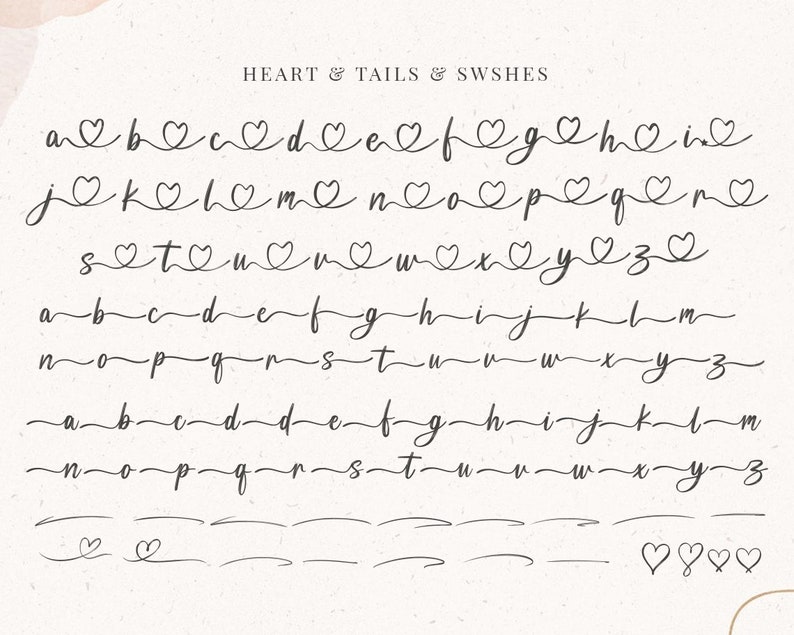 HEART & TAILS & SWSHES
a b c d e f g h i
j k l m n o p q r
s t u v w x y z
a b c d e f g h i j k l m
n o p q r s t u v w x y z
a b c d d e f g h i j k l m
n o p q r s t u v w x y z